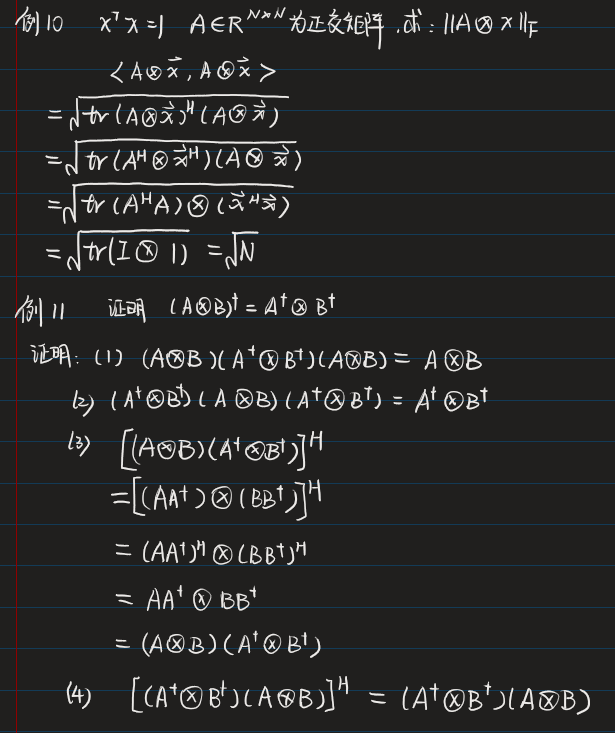 例10 xᵀx=1 A∈R^{N×N}为正交矩阵,求:||A⊗x||_F
<A⊗x⃗, A⊗x⃗>
=√(tr(A⊗x⃗)^H(A⊗x⃗))
=√(tr(A^H⊗x⃗^H)(A⊗x⃗))
=√(tr(A^HA)⊗(x⃗^Hx⃗))
=√(tr(I⊗1)) =√N
例11 证明 (A⊗B)^†=A^†⊗B^†
证明:(1) (A⊗B)(A^†⊗B^†)(A⊗B)= A⊗B
(2) (A^†⊗B^†)(A⊗B)(A^†⊗B^†)= A^†⊗B^†
(3) [(A⊗B)(A^†⊗B^†)]^H
=[(AA^†)⊗(BB^†)]^H
=(AA^†)^H⊗(BB^†)^H
= AA^†⊗BB^†
=(A⊗B)(A^†⊗B^†)
(4) [(A^†⊗B^†)(A⊗B)]^H = (A^†⊗B^†)(A⊗B)